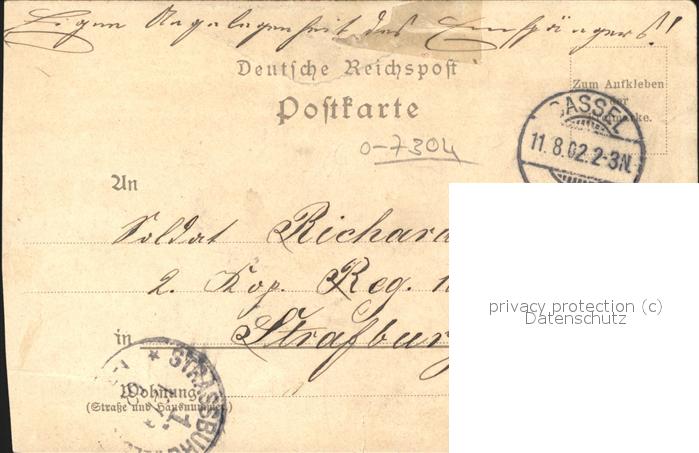 Eigene Angelegenheit des Empfängers!
Deutsche Reichspost
Postkarte
Zum Aufkleben
der
marke.
CASSEL
11.8.02.2-3N.
0-7304
An
Soldat Richard
2. Kop. Reg.
in Straßburg
privacy protection (c)
Datenschutz
STRASSBURG
1.
Wohnung
(Straße und Hausnummer)